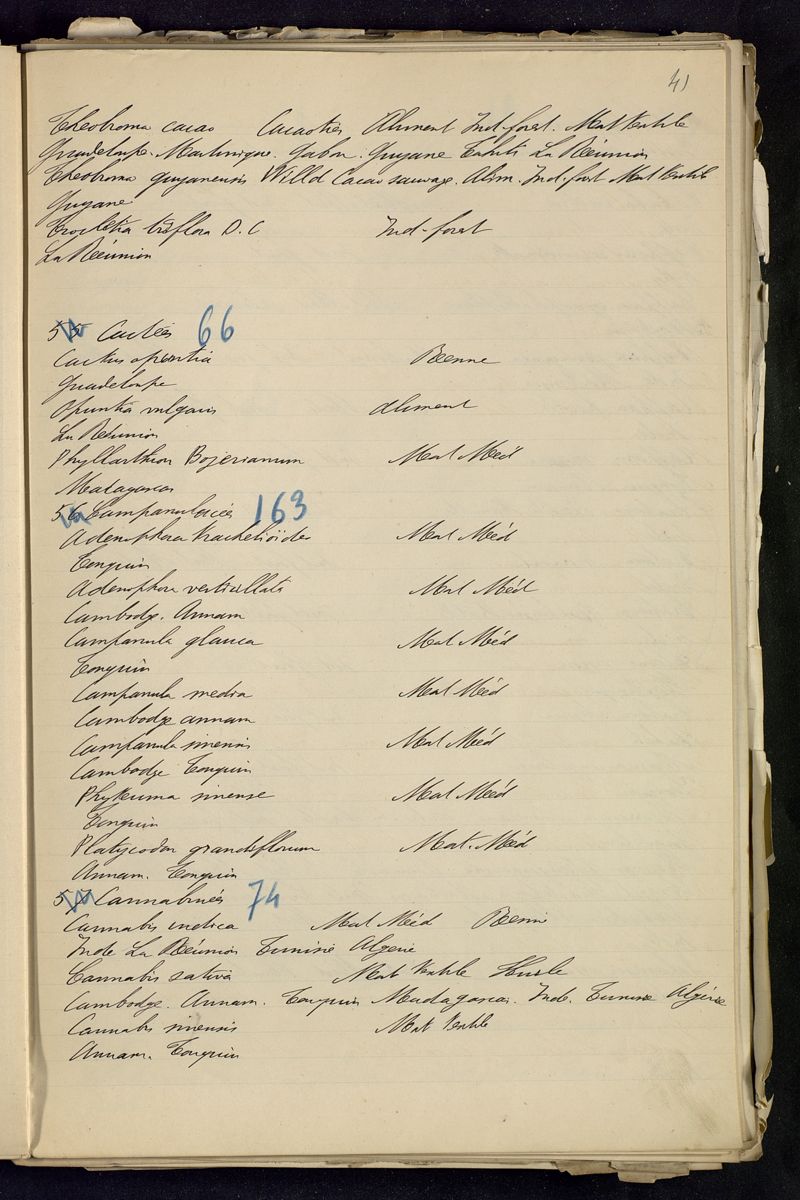 41
Theobroma cacao Cacaotier Aliment Ind-forest. Mat textile
Guadeloupe. Martinique. Gabon. Guyane Tahiti La Réunion
Theobroma guyanensis Willd Cacao sauvage. Alim. Ind-forest Mat textile
Guyane
Trochetia triflora D.C Ind-forest
La Réunion
55 Cactées 66
Cactus opuntia
Guadeloupe
Opuntia vulgaris Aliment
La Réunion
Phyllarthron Bojerianum Mat Méd
Madagascar
56 Campanulacées 163
Adenophora trachelioïdes Mat Méd
Tonquin
Adenophora verticillata Mat Méd
Cambodge. Annam
Campanula glauca Mat Méd
Tonquin
Campanula media Mat Méd
Cambodge annam
Campanula sinensis Mat Méd
Cambodge Tonquin
Phyteuma sinense Mat Méd
Tonquin
Platycodon grandiflorum Mat. Méd
Annam. Tonquin
57 Cannabinées 74
Cannabis indica Mat Méd
Inde La Réunion Tunisie Algerie
Cannabis sativa Mat textile Huile
Cambodge. Annam. Tonquin Madagascar. Inde. Tunisie Algérie
Cannabis sinensis Mat textile
Annam. Tonquin